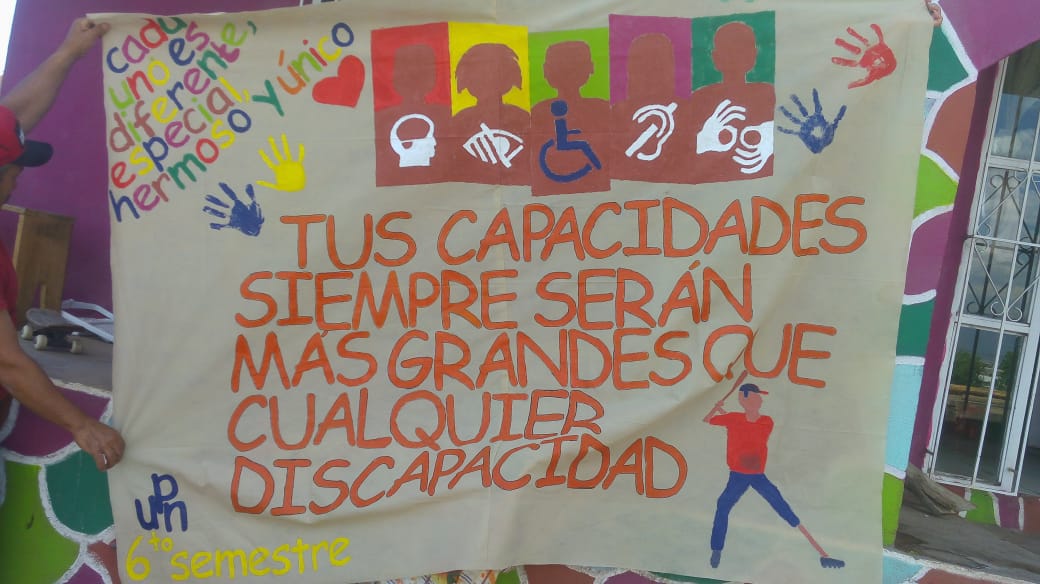 cada
uno es
diferente,
especial,
hermoso y único
TUS CAPACIDADES
SIEMPRE SERÁN
MÁS GRANDES QUE
CUALQUIER
DISCAPACIDAD
upn
6to semestre